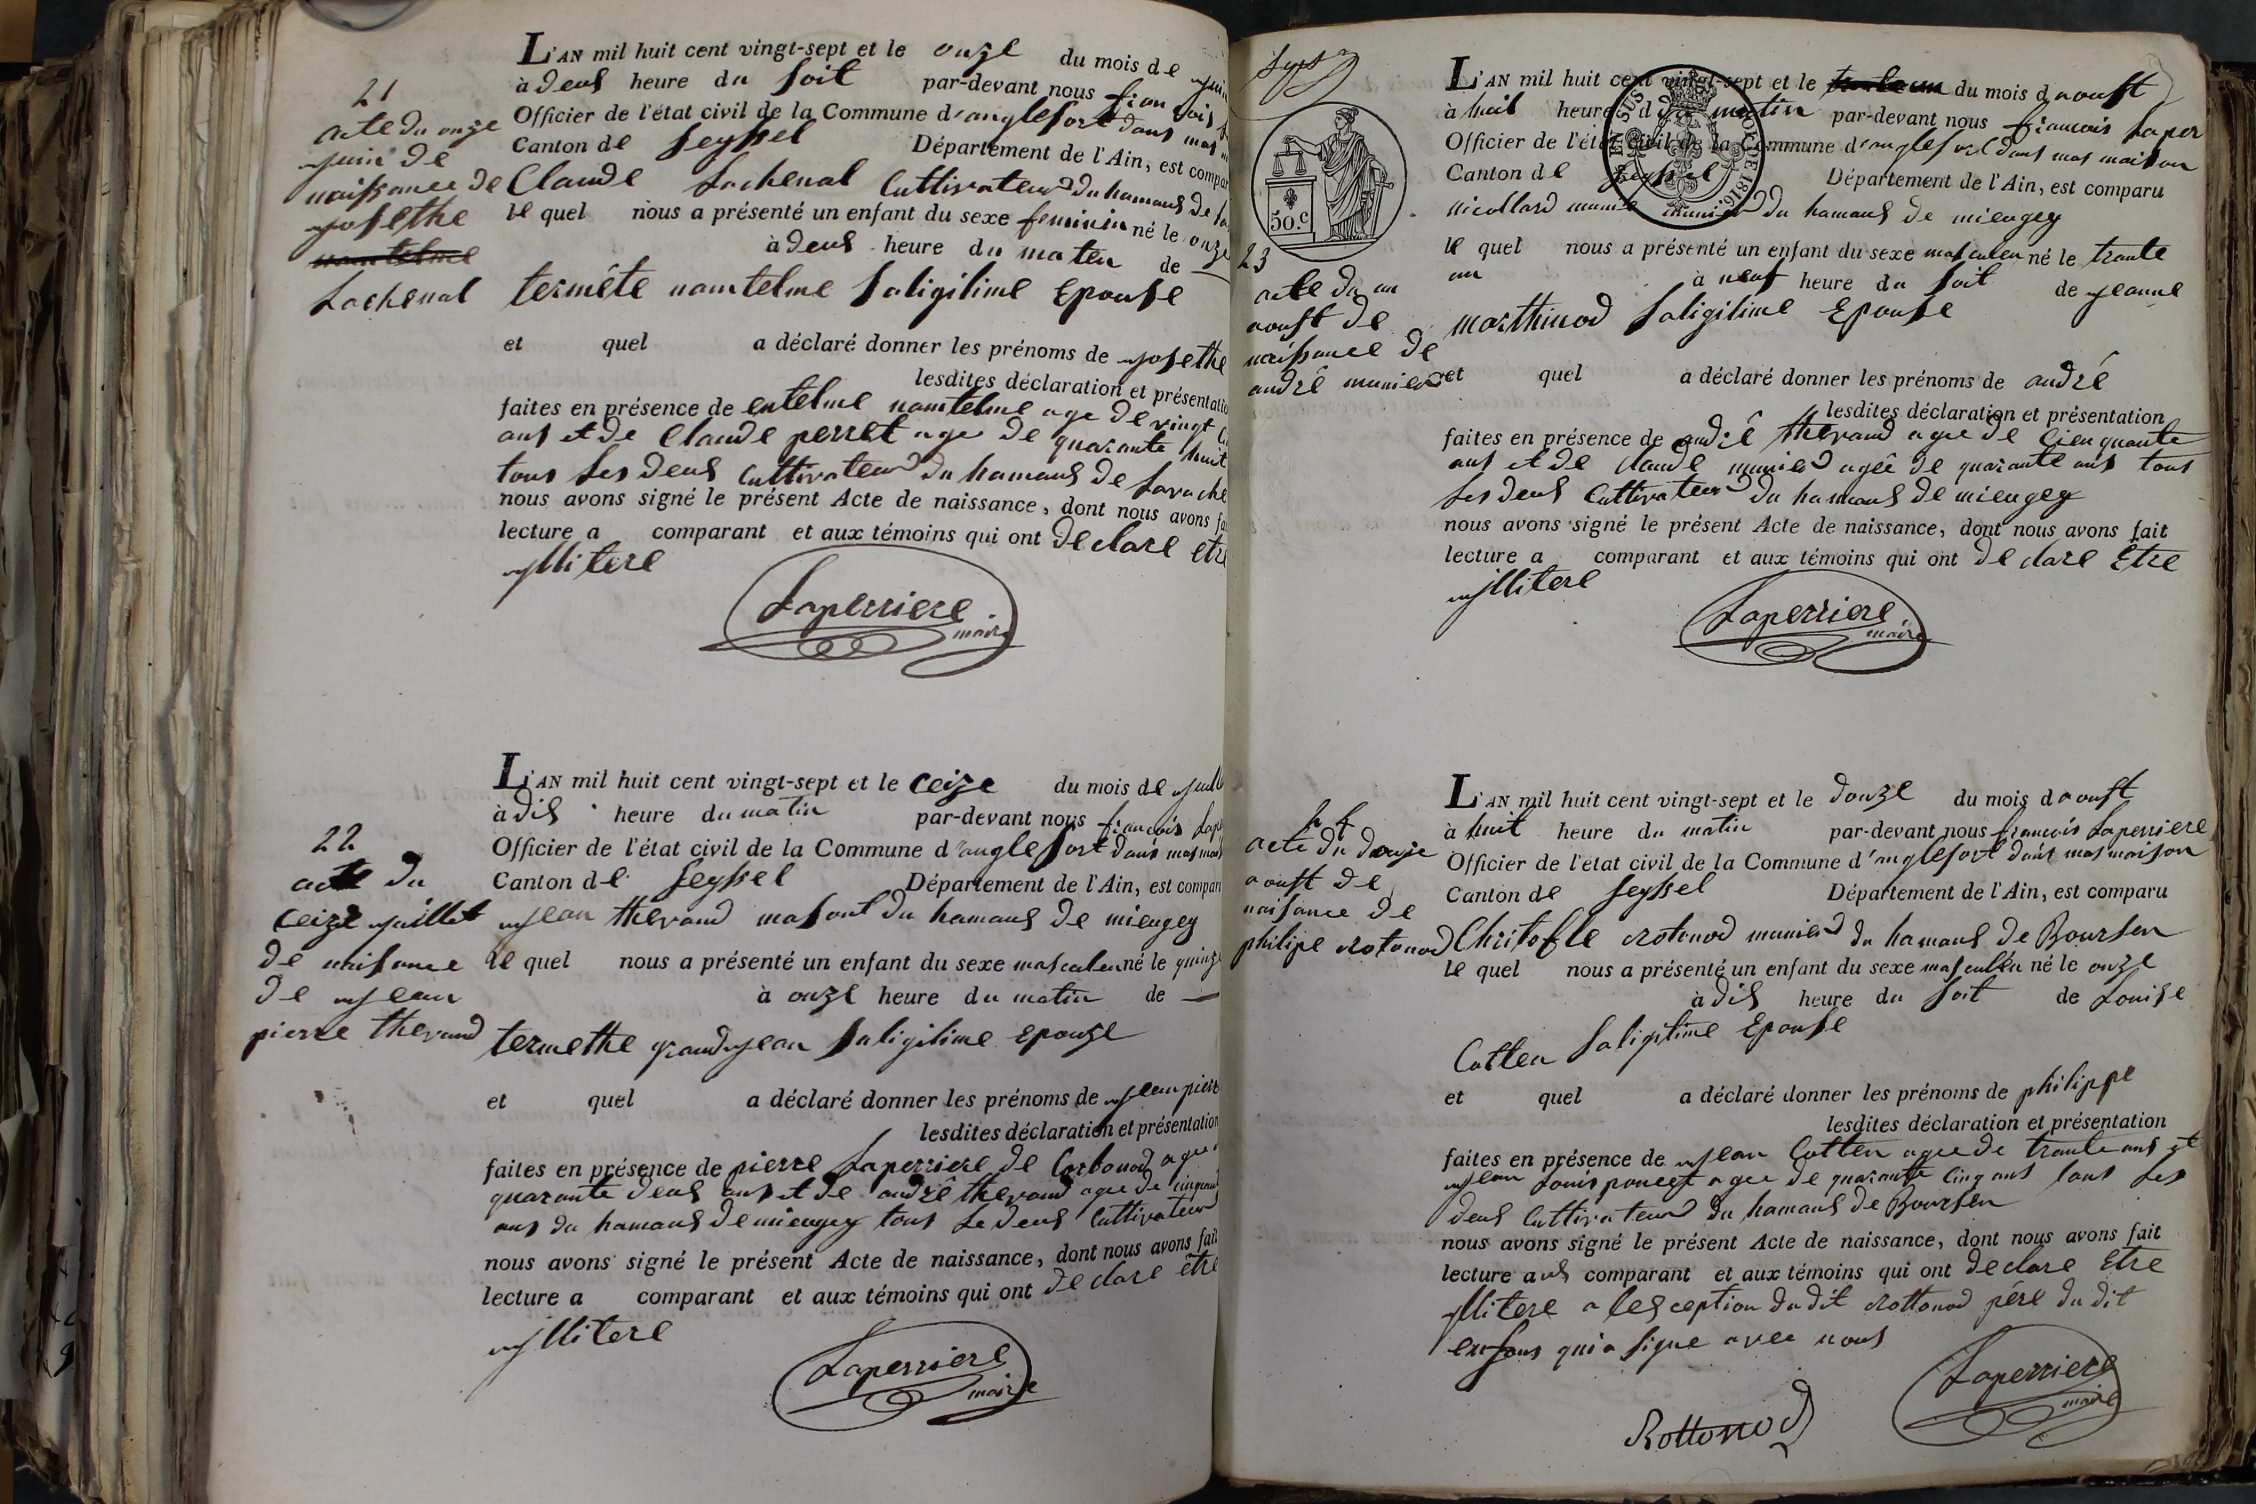 21
acte du onze
juin de
naissance de
josethe
namtelme
Lachenal
L'AN mil huit cent vingt-sept et le onze du mois de juin
à deus heure du soit par-devant nous francois
Officier de l'état civil de la Commune d'anglefort dans mas
Canton de seyssel Département de l'Ain, est compar
Claude Lachenal Cultivateur du hamaus de
le quel nous a présenté un enfant du sexe feminin né le onze
à deus heure du maten de
termête namtelme saligitime Epouse
et quel a déclaré donner les prénoms de josethe
lesdites déclaration et présentatio
faites en présence de entelme namtelme age de vingt
ans et de Claude perret age de quarante huit
tous les deus Cultivateur du hamaus de Lavache
nous avons signé le présent Acte de naissance, dont nous avons fa
lecture a comparant et aux témoins qui ont declare etre
jllitere
Laperriere
maire
22
acte du
ceize juillet
de naisance
de jean
pierre thevand
L'AN mil huit cent vingt-sept et le ceize du mois de juill
à dis heure du matin par-devant nous francois Lape
Officier de l'état civil de la Commune d'anglefort dans mas mais
Canton de seyssel Département de l'Ain, est compar
jean thevand masont du hamaus de miengey
le quel nous a présenté un enfant du sexe masculen né le quinze
à onze heure du matin de
termethe grandjean saligitime epouze
et quel a déclaré donner les prénoms de jean pierr
lesdites déclaration et présentation
faites en présence de pierre Laperriere de Corbonod agee
quarante deus ans et de andrê thevand agee de cinquant
ans du hamaus de miengey tous Le deus Cultivateur
nous avons signé le présent Acte de naissance, dont nous avons fait
lecture a comparant et aux témoins qui ont declare etre
jllitere
Laperriere
maire
50.c
23
acte du un
aoust de
naissance de
andrê munier
L'AN mil huit cent vingt-sept et le du mois d aoust
à huit heure du matin par-devant nous francois Laper
Officier de l'état civil de la Commune d'anglefort dans mas maison
Canton de seyssel Département de l'Ain, est comparu
nicollard munie munier du hamaus de miengey
le quel nous a présenté un enfant du sexe masculen né le trante
un à neuf heure du soit de jeanne
marthinod saligitime Epouse
et quel a déclaré donner les prénoms de andré
lesdites déclaration et présentation
faites en présence de andrê thevand agee de cienquante
ans et de claude munier agêe de quarante ans tous
Les deus Cultivateur du hamaus de miengey
nous avons signé le présent Acte de naissance, dont nous avons fait
lecture a comparant et aux témoins qui ont declare être
jllitere
Laperriere
maire
24
acte du douze
aoust de
naisance de
philipe rotonod
L'AN mil huit cent vingt-sept et le douze du mois d aoust
à huit heure du matin par-devant nous francois Laperriere
Officier de l'état civil de la Commune d'anglefort dans mas maison
Canton de seyssel Département de l'Ain, est comparu
Christofle rotonod munier du hamaus de Boursen
le quel nous a présenté un enfant du sexe masculên né le onze
à dis heure du soit de Louise
Cotten saligitime Epouse
et quel a déclaré donner les prénoms de philippe
lesdites déclaration et présentation
faites en présence de jean Cotten agee de trante ans et
jean Louis poncet agee de quarante Cinq ans tous Les
deus Cultivateur du hamaus de Boursen
nous avons signé le présent Acte de naissance, dont nous avons fait
lecture aus comparant et aux témoins qui ont declare Etre
jllitere a lesception du dit rottonod pére du dit
enfans qui a signe avec nous
Laperriere
maire
Rottonod